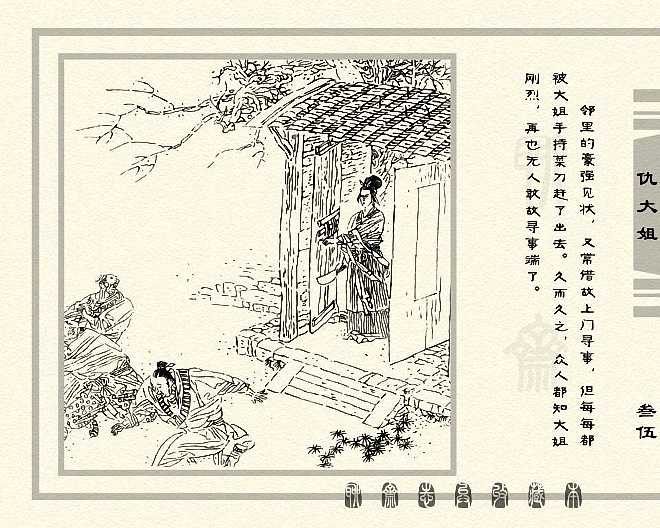 邻里的豪强见状，又常借故上门寻事，但每每都
被大姐手持菜刀赶了出去。久而久之，众人都知大姐
刚烈，再也无人敢故寻事端了。
仇大姐
叁伍